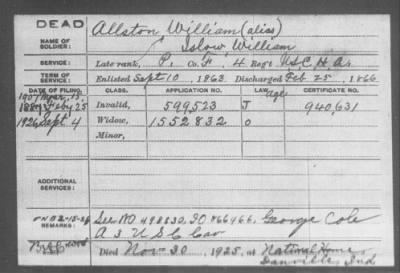 DEAD
Allston William (alias)
NAME OF SOLDIER:
Islow William
SERVICE: Late rank, P. Co. F, 4 Reg't U.S.C.H.A.
TERM OF SERVICE: Enlisted Sept 10, 1863. Discharged Feb 25, 1866
DATE OF FILING. CLASS. APPLICATION NO. LAW. CERTIFICATE NO.
Feby 25 Invalid, 599,523 J 940,631
1926, Sept 4 Widow, 1552832 O
Minor,
ADDITIONAL SERVICES:
REMARKS: See NO 498830, George Cole
A 3 U S C Cav
Died Nov 30, 1925, at National Home,
Danville, Ind